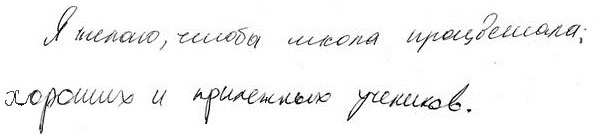 Я желаю, чтобы школа процветала;
хороших и прилежных учеников.